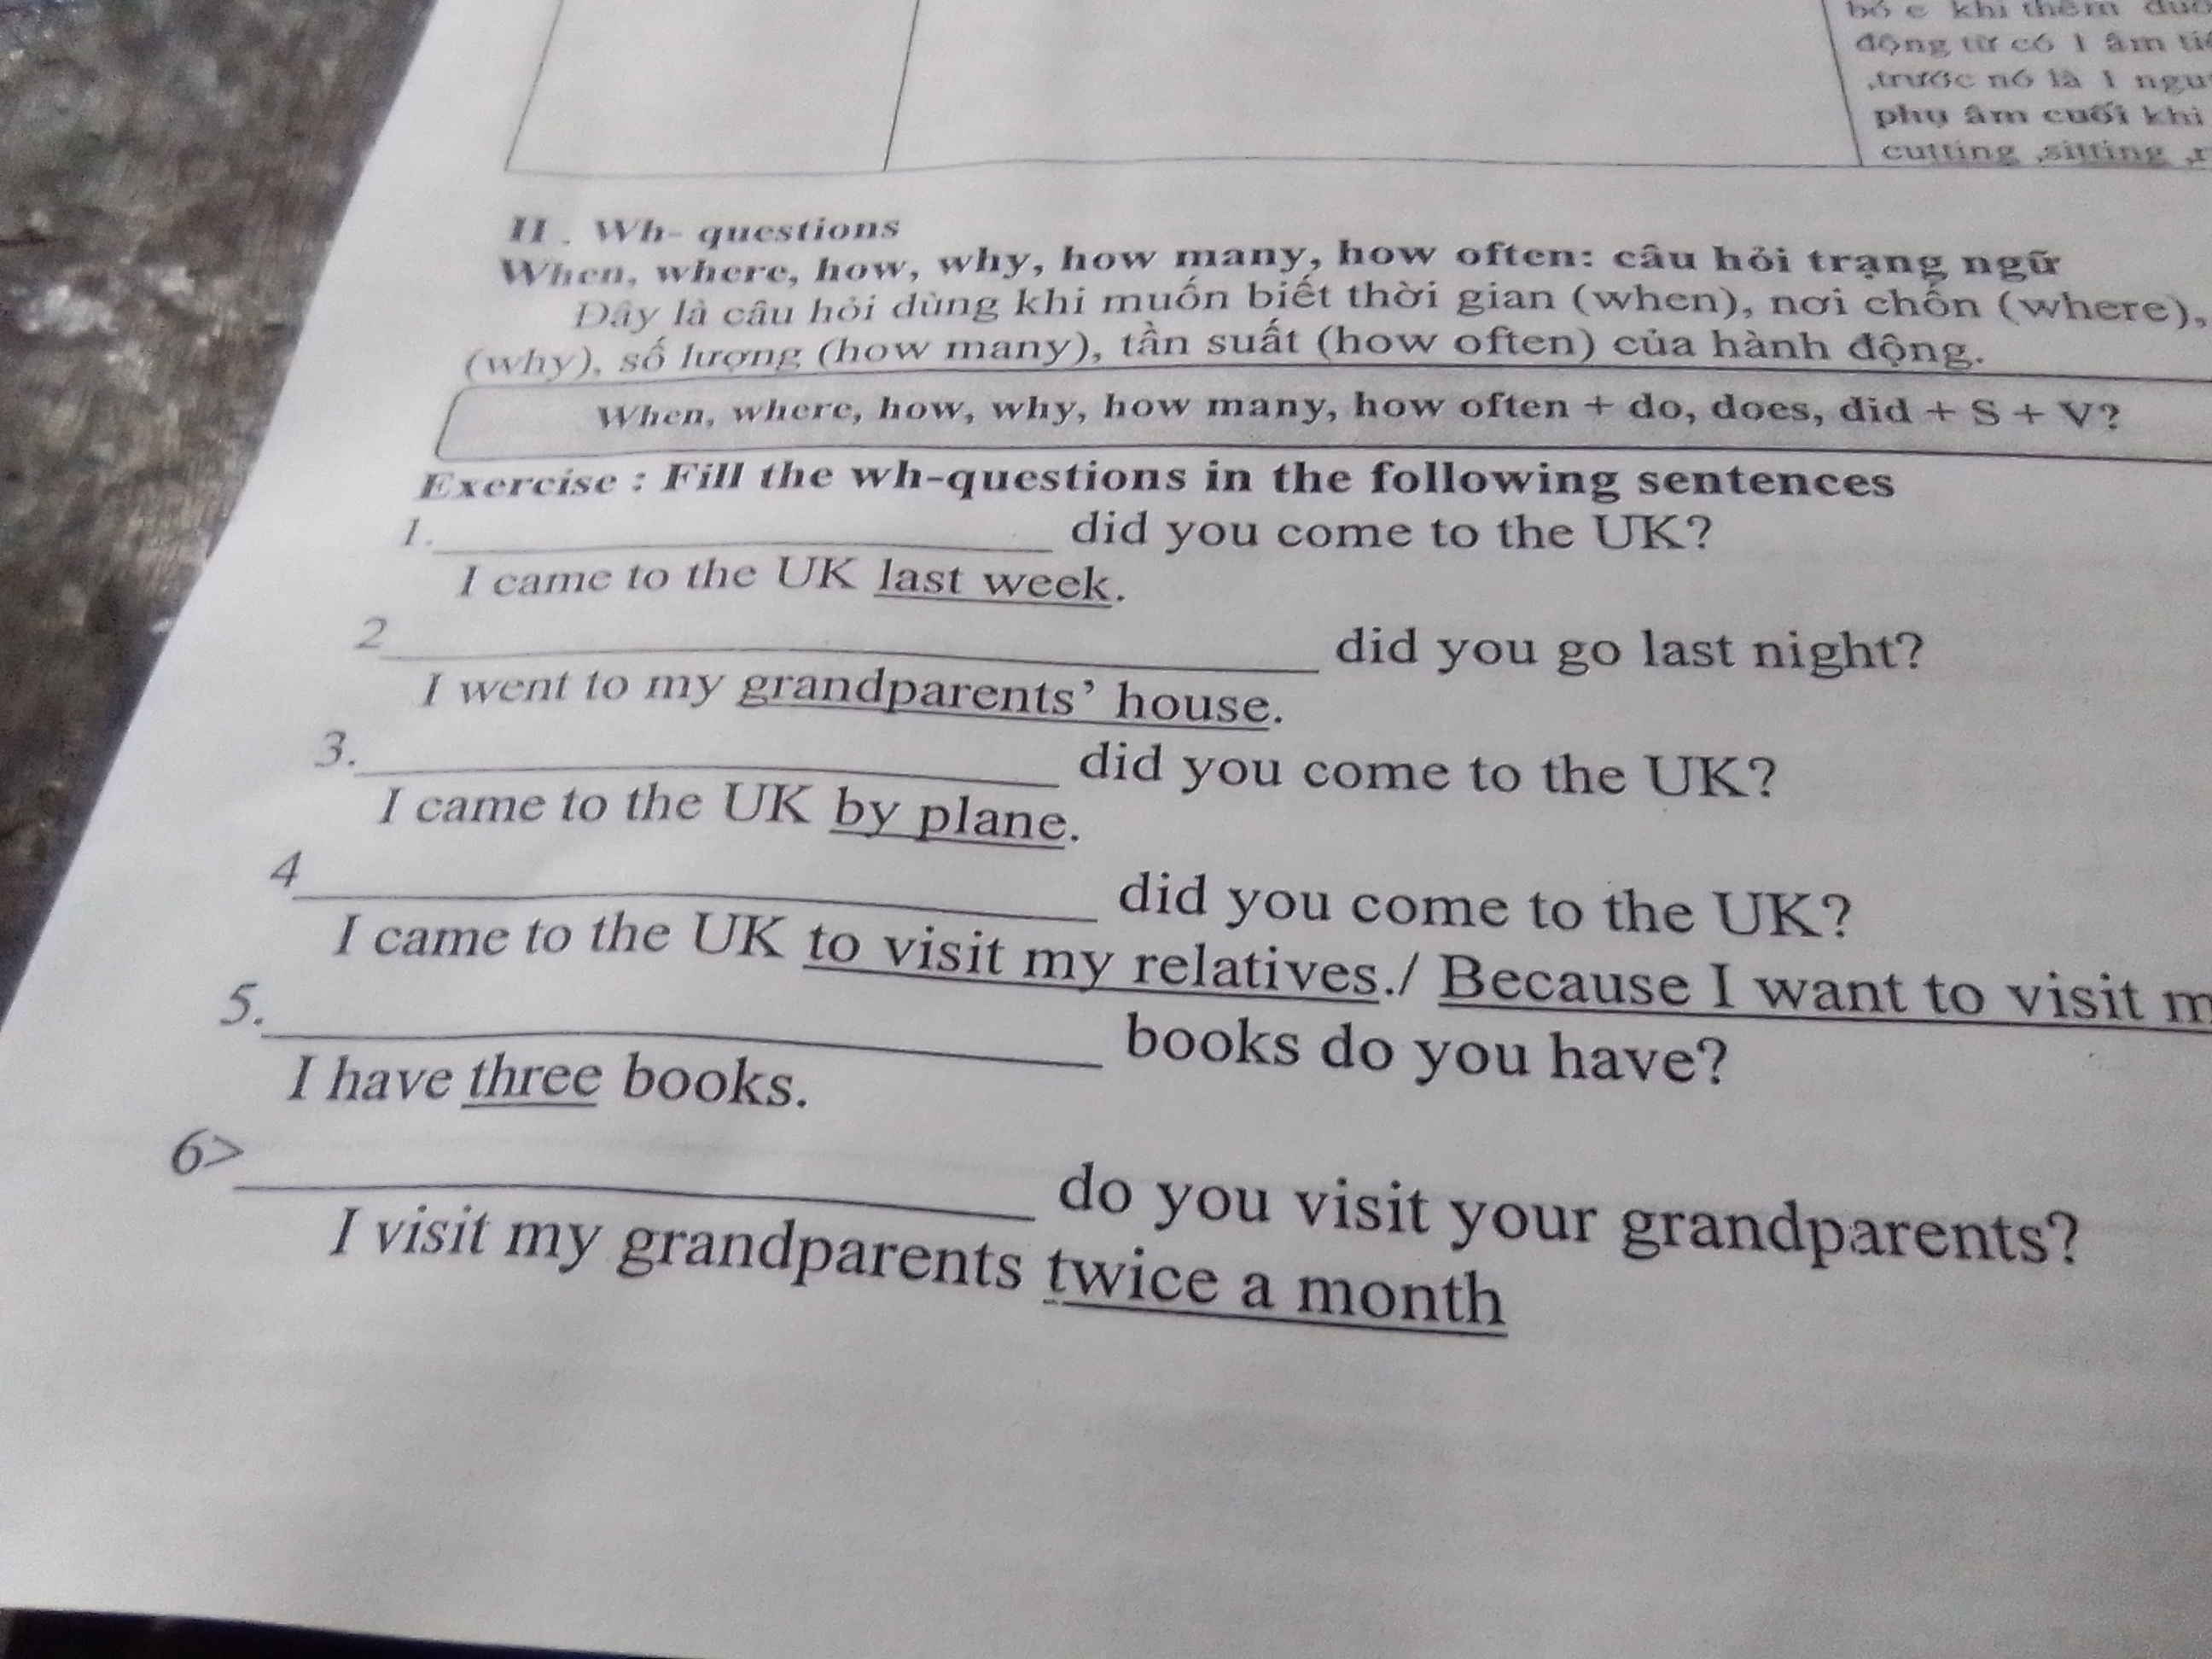 bỏ e khi thêm
động từ có 1 âm
,trước nó là 1
phụ âm cuối khi
cutting ,sitting
II . Wh- questions
When, where, how, why, how many, how often: câu hỏi trạng ngữ
Đây là câu hỏi dùng khi muốn biết thời gian (when), nơi chốn (where),
(why), số lượng (how many), tần suất (how often) của hành động.
When, where, how, why, how many, how often + do, does, did + S + V?
Exercise : Fill the wh-questions in the following sentences
1.____________________ did you come to the UK?
I came to the UK last week.
2______________________________ did you go last night?
I went to my grandparents’ house.
3.______________________ did you come to the UK?
I came to the UK by plane.
4________________________ did you come to the UK?
I came to the UK to visit my relatives./ Because I want to visit
5.________________________ books do you have?
I have three books.
6>______________________ do you visit your grandparents?
I visit my grandparents twice a month